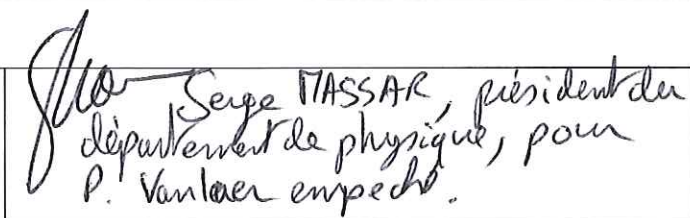 Serge MASSAR, président du
département de physique, pour
P. Vanlaer empeché.